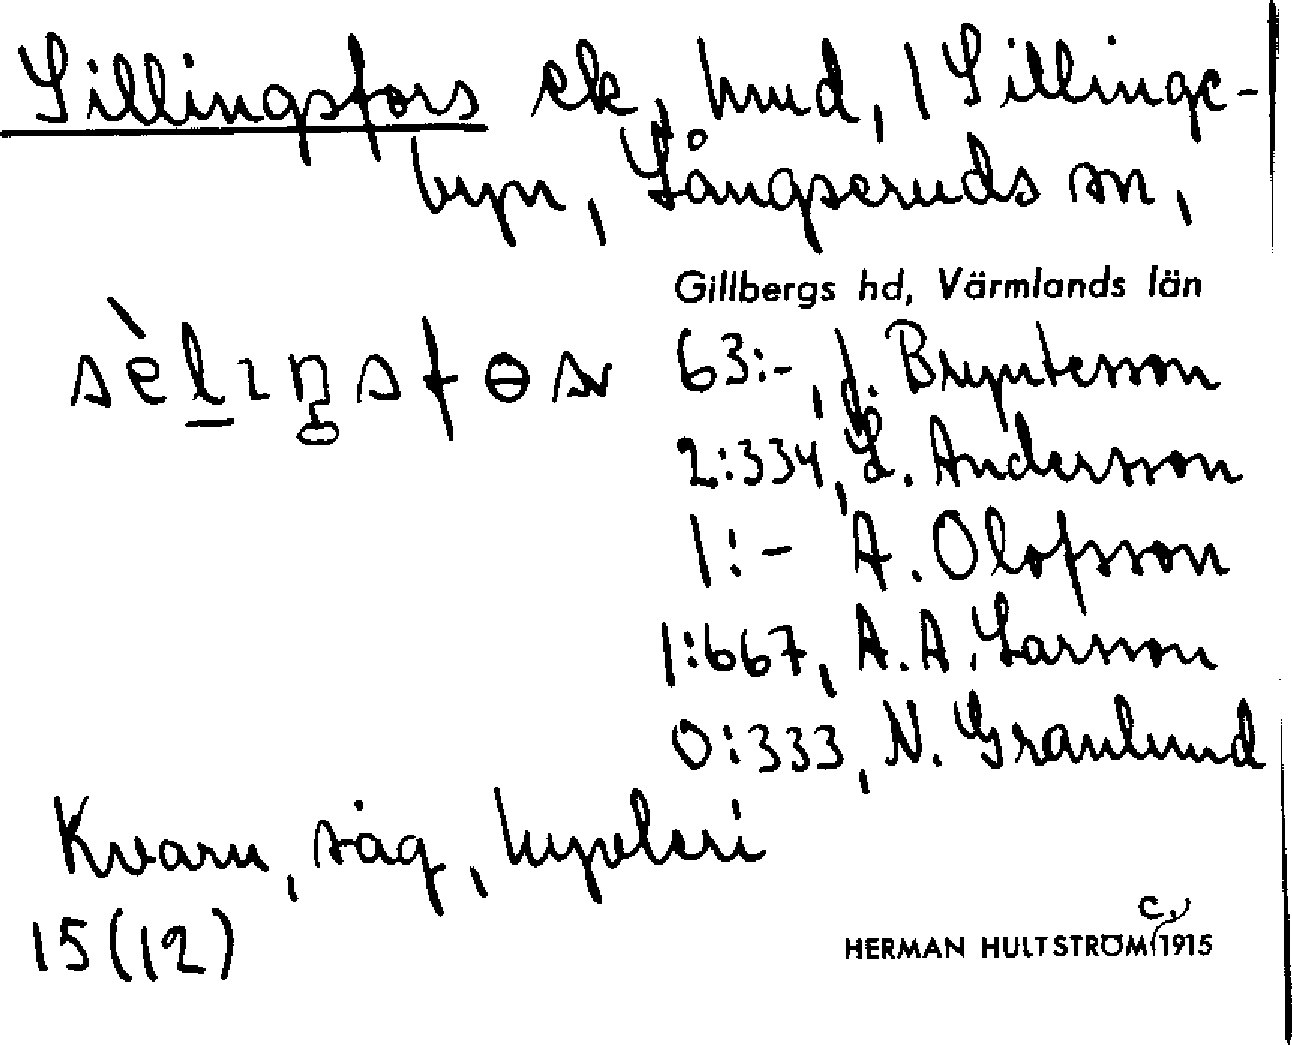 Sillingsfors ek, hmd, i Sillinge-
byn, Långseruds sn,
Gillbergs hd, Värmlands län
sèlıŋsfɵsr
63:-, J. Bryntesson
2:334, L. Andersson
1:- A. Olofsson
1:667, A. A. Larsson
0:333, N. Granlund
Kvarn, såg, hyvleri
15 (12)
HERMAN HULTSTRÖM c, 1915